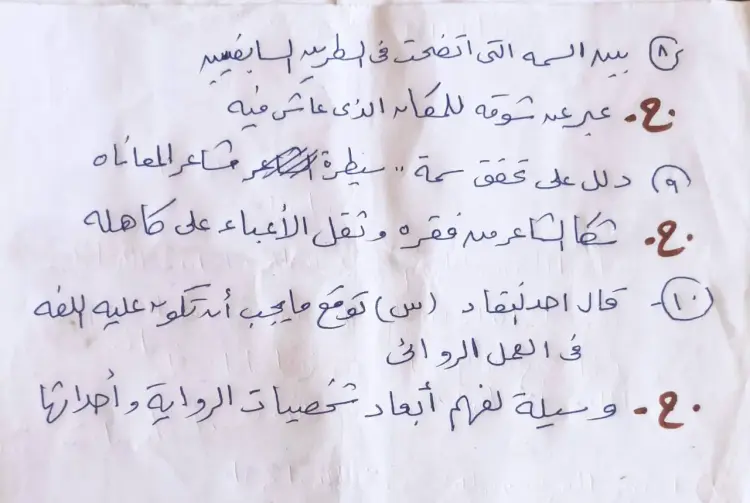 ٨) بين السمه التى اتضحت فى السطرين السابقيين
ج. عبر عن شوقه للمكان الذى عاش فيه
٩) دلل على تحقق سمة ,, سيطرة مشاعر المعاناه
ج. شكا الشاعر من فقره وثقل الأعباء على كاهله
١٠- قال احد النقاد (س) توقع مايجب أن تكون عليه اللغه
فى العمل الروائى
ج. - وسيلة لفهم أبعاد شخصيات الرواية وأحداثها